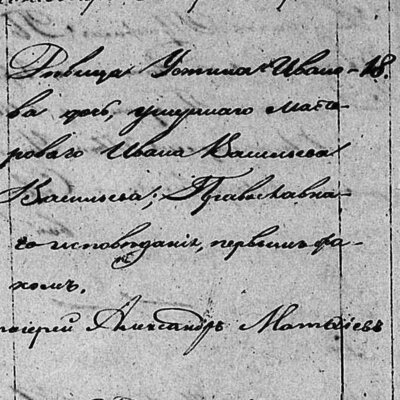 Дѣвица Устина Ивано- 18.
ва дочь, умершаго масте-
роваго Ивана Васильева
Васильева, Православна-
го исповѣданія, первымъ бра-
комъ.
Александръ Матвѣевъ